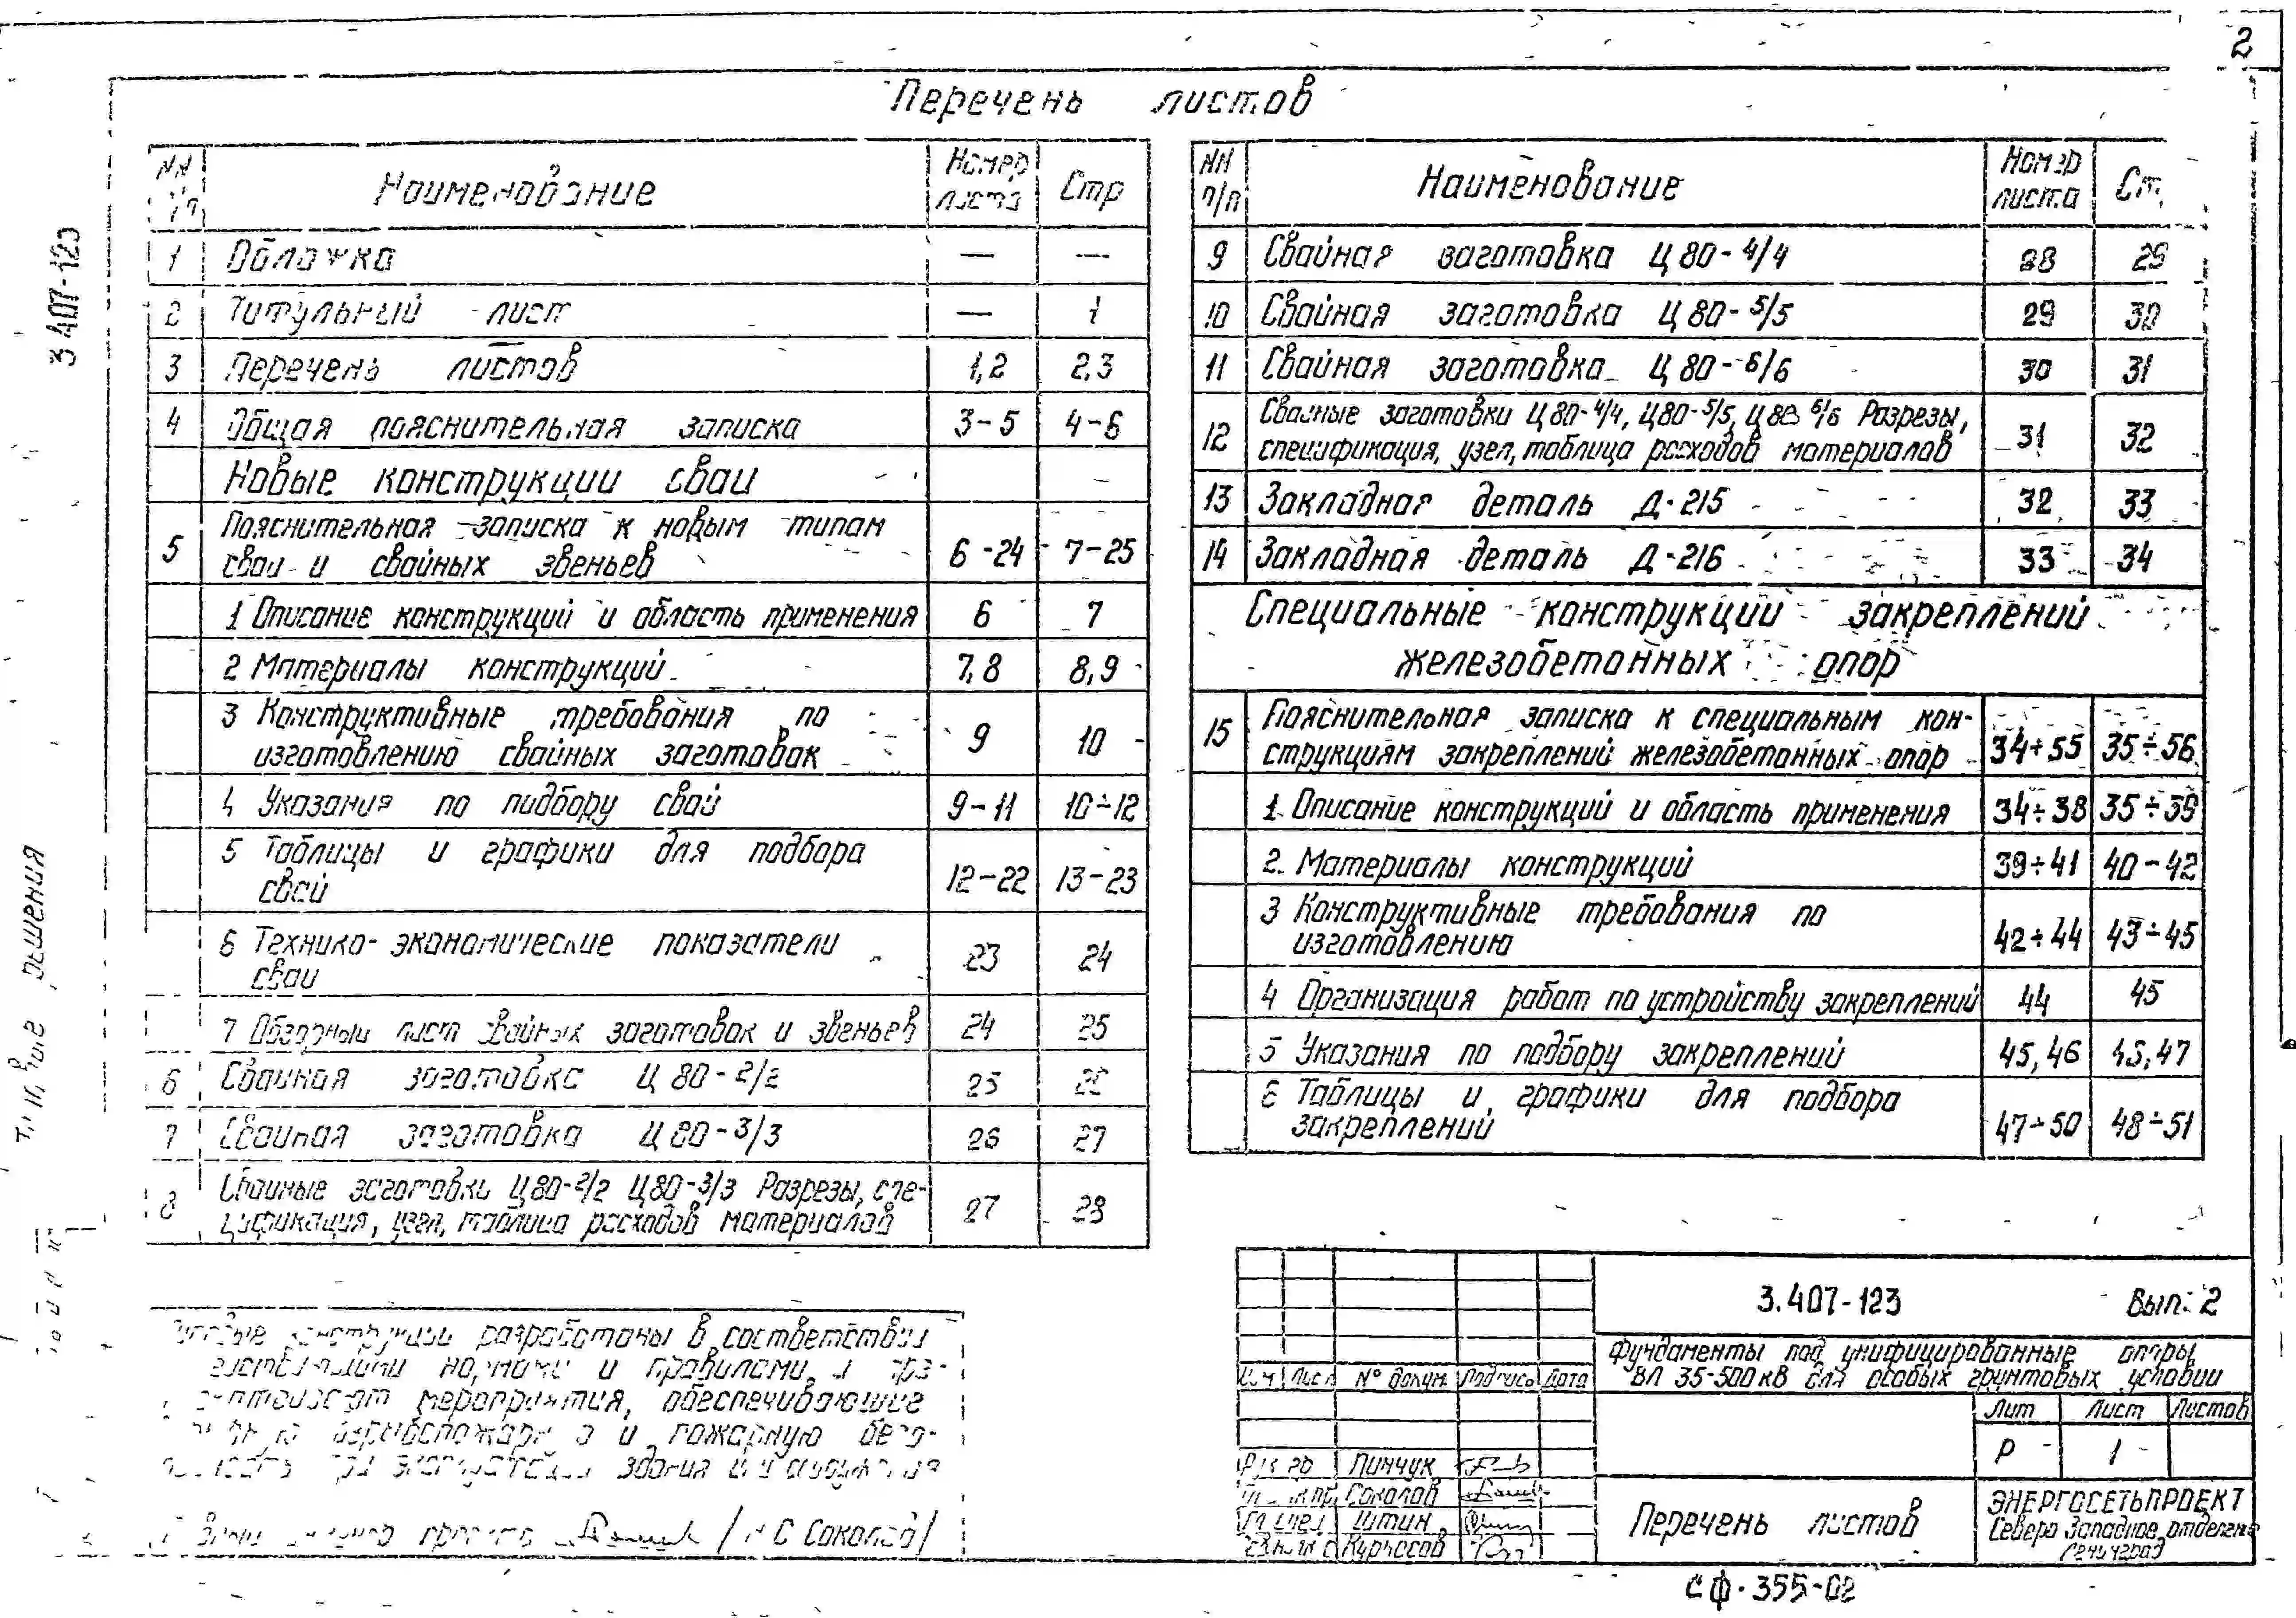 2
Перечень листов
3 407-123
NN Наименование Номер листа Стр
1 Обложка — —
2 Титульный лист — 1
3 Перечень листов 1,2 2,3
4 Общая пояснительная записка 3-5 4-6
Новые конструкции сваи
5 Пояснительная записка к новым типам
сваи и свайных звеньев 6-24 7-25
1 Описание конструкций и область применения 6 7
2 Материалы конструкций 7,8 8,9
3 Конструктивные требования по
изготовлению свайных заготовок 9 10
4 Указания по подбору свай 9-11 10÷12
5 Таблицы и графики для подбора
свай 12-22 13-23
6 Технико-экономические показатели
сваи 23 24
7 Обзорный лист свайных заготовок и звеньев 24 25
6 Свайная заготовка Ц 80-2/2 25
7 Свайная заготовка Ц 80-3/3 26 27
8 Свайные заготовки Ц80-2/2 Ц80-3/3 Разрезы, спе-
цификация, узел, таблица расходов материалов 27 28
NN п/п Наименование Номер листа Ст.
9 Свайная заготовка Ц 80-4/4 28 29
10 Свайная заготовка Ц 80-5/5 29 30
11 Свайная заготовка Ц 80-6/6 30 31
12 Свайные заготовки Ц80-4/4, Ц80-5/5, Ц80 6/6 Разрезы,
спецификация, узел, таблица расходов материалов 31 32
13 Закладная деталь Д-215 32 33
14 Закладная деталь Д-216 33 34
Специальные конструкции закреплений
железобетонных опор
15 Пояснительная записка к специальным кон-
струкциям закреплений железобетонных опор 34÷55 35÷56
1. Описание конструкций и область применения 34÷38 35÷39
2. Материалы конструкций 39÷41 40-42
3 Конструктивные требования по
изготовлению 42÷44 43÷45
4 Организация работ по устройству закреплений 44 45
5 Указания по подбору закреплений 45,46 47
6 Таблицы и графики для подбора
закреплений 47÷50 48÷51
решения
разработаны в соответствии
нормами и правилами
мероприятия, обеспечивающие
и пожарную безо-
при здания
Соколов/
3.407-123 Вып. 2
Фундаменты под унифицированные опоры
ВЛ 35-500 кВ для особых грунтовых условий
Лист № докум. Подпись Дата
Лит Лист Листов
Р 1
Пинчук
Соколов
Штин
Перечень листов
ЭНЕРГОСЕТЬПРОЕКТ
Северо Западное отделение
Ленинград
СФ-355-02